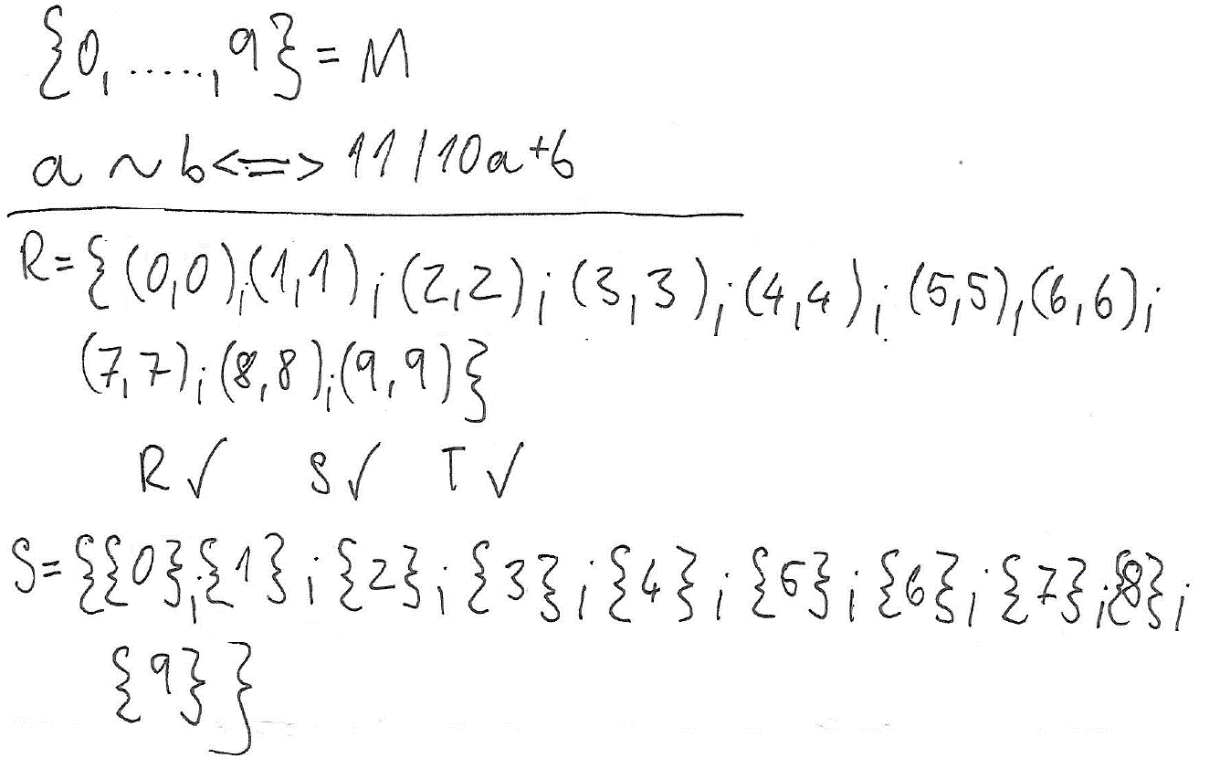 {0, ....., 9} = M
a ~ b <=> 11 | 10a + b
R = {(0,0);(1,1);(2,2);(3,3);(4,4);(5,5),(6,6);
(7,7);(8,8);(9,9)}
R✓ S✓ T✓
S = {{0};{1};{2};{3};{4};{5};{6};{7};{8};
{9}}